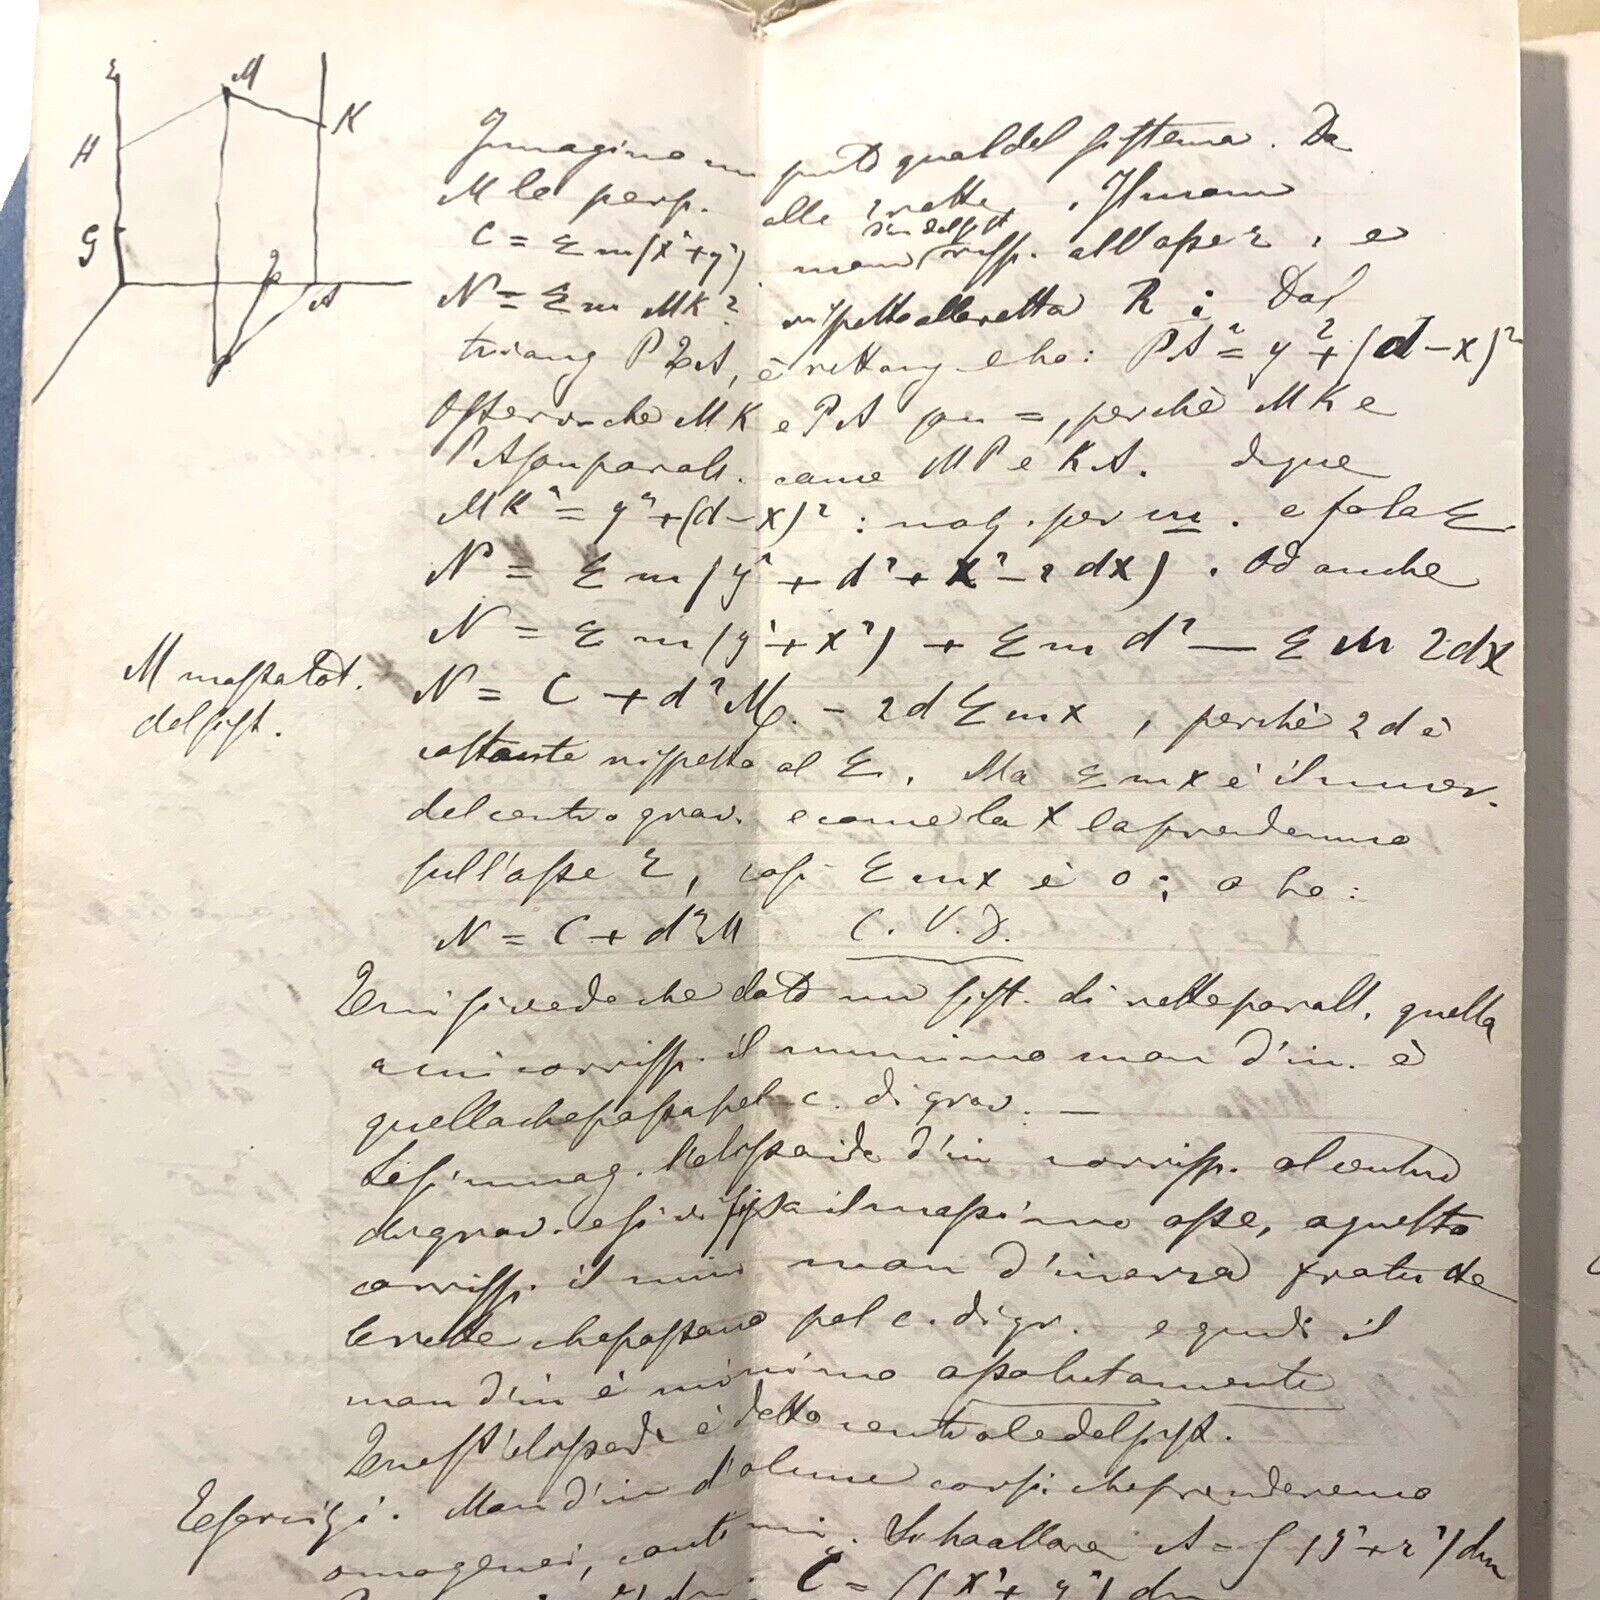 z M
H K
G
Q A
P
Immagino un punto qual del sistema. Da
M le perp. alle 2 rette. Il mom
d'in del sist
C = Σ m (x² + y²) mom risp. all'asse z, e
N = Σ m MK² rispetto alla retta R; Dal
triang PQA, è rettang e ho: PA² = y² + (d - x)²
Osservo che MK e PA son =, perchè MK e
PA son parall. come MP e KA. Dque
MK² = y² + (d - x)² : molt. per m. e fo la Σ
N = Σ m (y² + d² + x² - 2dx). Od anche
N = Σ m (y² + x²) + Σ m d² — Σ m 2dx
M massa tot.
del sist.
N = C + d² M. - 2d Σ mx, perchè 2d è
costante rispetto al Σ. Ma Σ mx è il
del centro grav. e come la x la prendemmo
sull'asse z, così Σ mx è 0; o ho:
N = C + d² M C.V.D.
si vede che dato un sist. di rette parall. quella
a cui corrisp. il minimo mom d'in. è
quella che passa pel c. di grav. —
Se si immag. l'elissoide d'in corrisp. al centro
di grav. e si fissa il massimo asse, a questo
corrisp. il min mom d'inerzia fra tutte
le rette che passano pel c. di gr. e quindi il
mom d'in è minimo assolutamente
Quest'elissoide è detto centrale del sist.
Esercizi. Mom d'in d'alcuni corpi che prenderemo
omogenei, continui. Si ha allora A = ∫ (y² + z²) dm
C = ∫ (x² + y²) dm